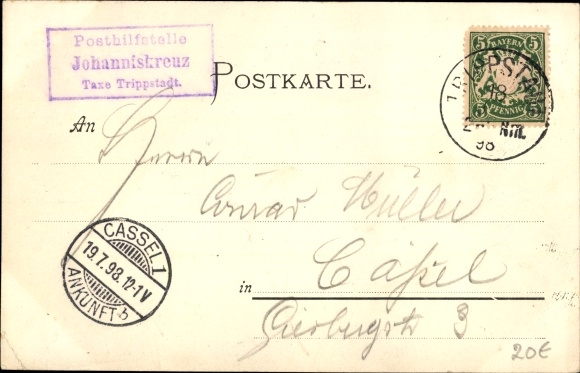 Posthilfstelle
Johanniskreuz
Taxe Trippstadt.
POSTKARTE.
5 BAYERN 5
5 PFENNIG 5
TRIPPSTA
18
Nm.
98
An
Herrn
Conrad Müller
in Cassel
3
CASSEL 1
19.7.98.12-1V
ANKUNFT
20€